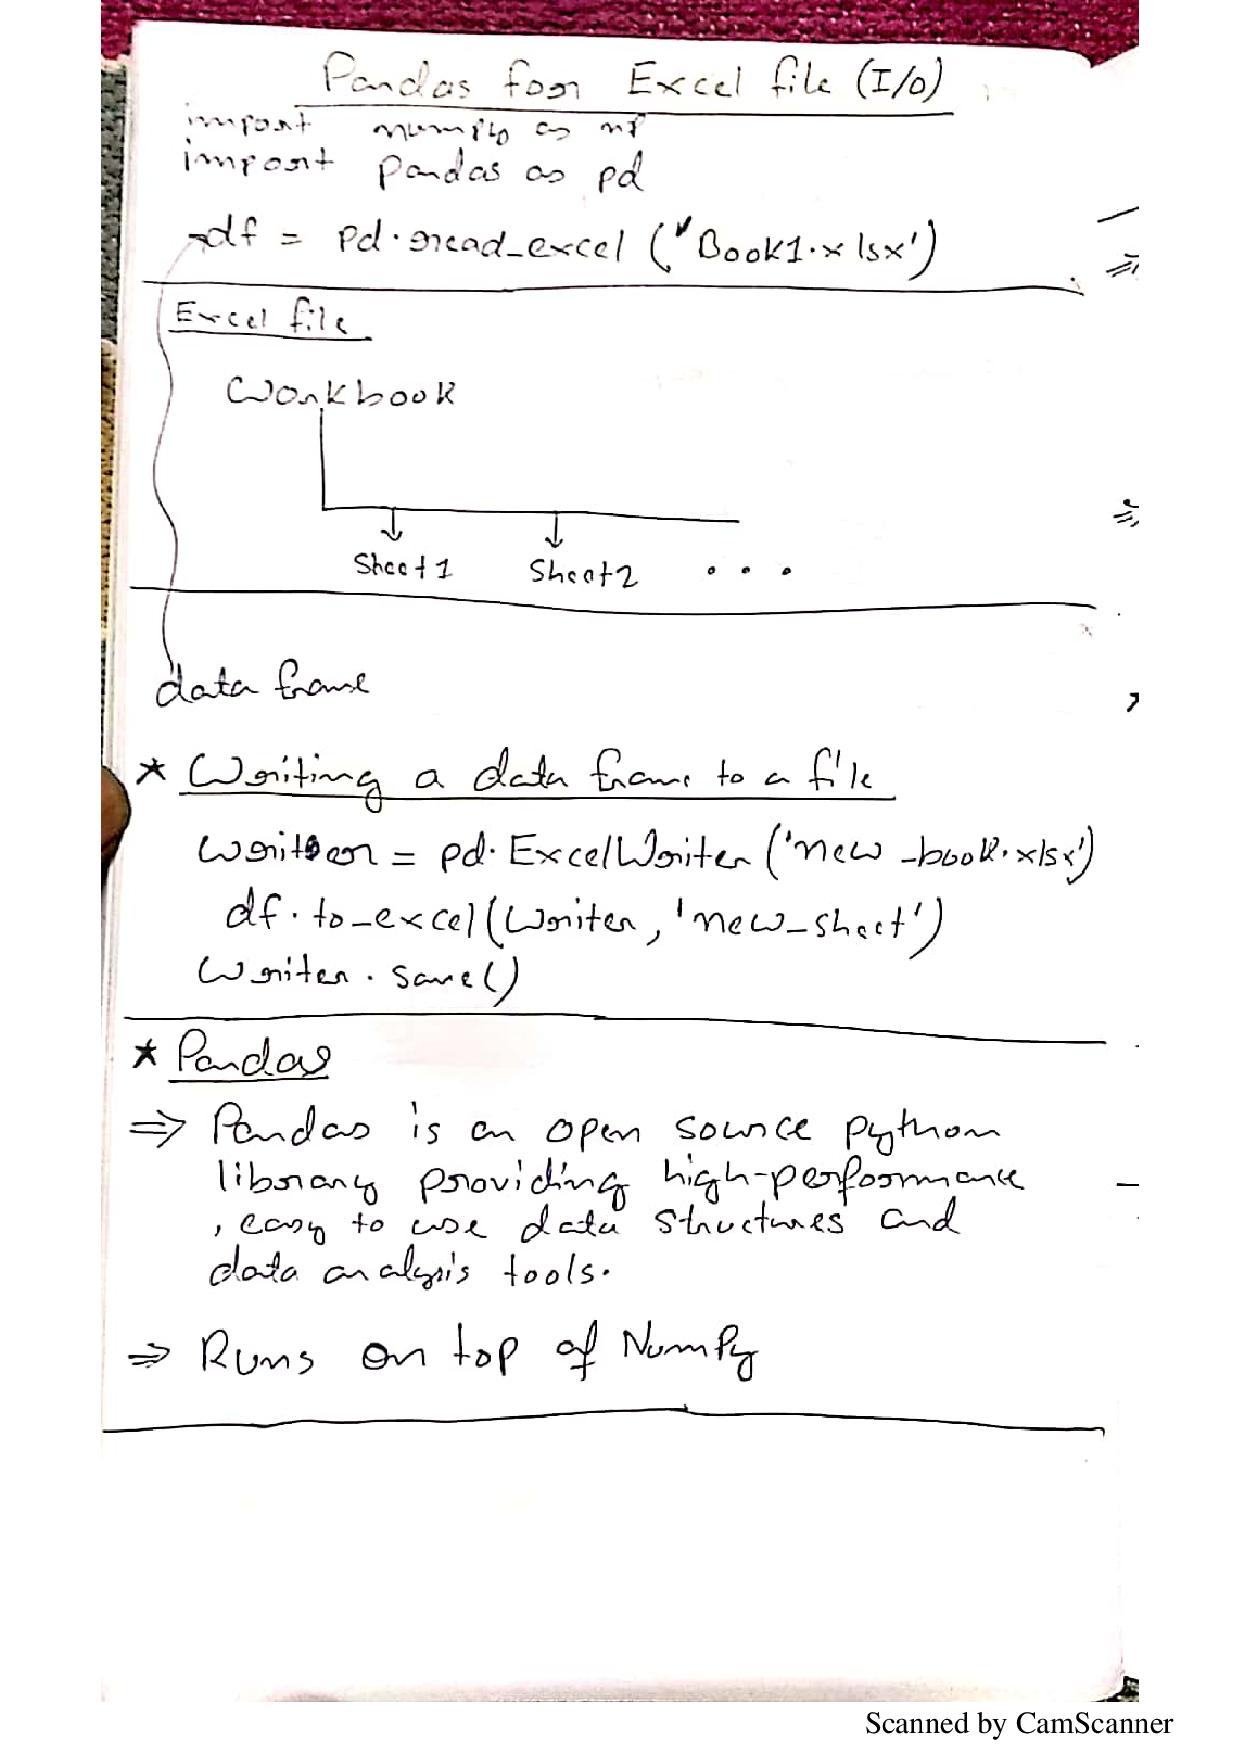 Pandas for Excel file (I/O)
import numpy as np
import pandas as pd
df = pd.read_excel ('Book1.xlsx')
Excel file
Workbook
Sheet1 Sheet2 ...
data frame
* Writing a data frame to a file
writer = pd.ExcelWriter ('new_book.xlsx')
df.to_excel(writer, 'new_sheet')
writer.save()
* Pandas
⇒ Pandas is an open source python
library providing high-performance
, easy to use data structures and
data analysis tools.
⇒ Runs on top of NumPy
Scanned by CamScanner